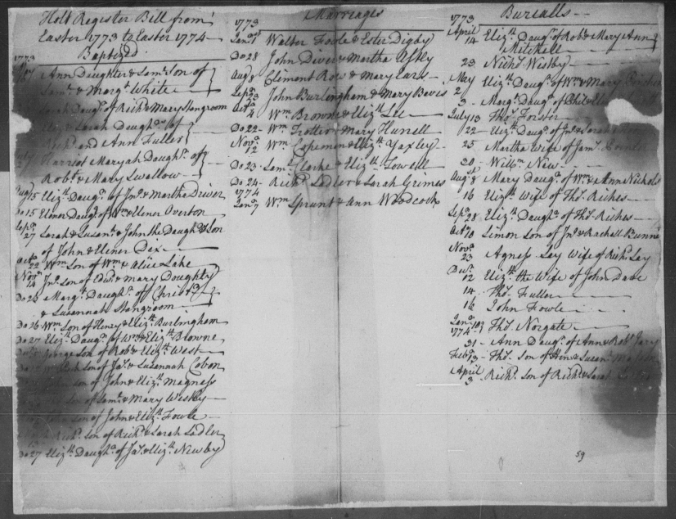 Holt Register Bill from
Easter 1773 to Easter 1774
Baptized
1773
Ann Daughter & Saml. Son of
Saml. & Margt. White
Daugr. of Richd. & Mary Stangroom
& Sarah Daughrs. of
and Ann Fuller
Harriot Maryah Daughr. of
Robt. & Mary Swallow
15 Elizth. Daugr. of Jno. & Martha Driver
Do 15 Elinor Daugr. of Wm. & Elinor Overton
Sepr. 27 Sarah & Susanh. & John the Daughrs. & Son
of John & Elinor Dix
Octr. Wm. Son of Wm. & Alice Lake
Novr. 14 Jno. Son of Edwd. & Mary Doughty
Do 26 Margt. Daughr. of Christr.
& Susannah Stangroom
Do 16 Wm. Son of Henry & Elizth. Burlingham
Do 27 Elizth. Daugr. of Wm. & Elizth. Browne
George Son of Robt. & Elizth. West
Son of Jas. & Susannah Cobon
Son of John & Elizth. Magness
Son of Saml. & Mary Wesby
Son of John & Elizth. Fowle
Richd. Son of Richd. & Sarah Sadler
Do 27 Elizth. Daughr. of Jas. & Elizth. Newby
Marriages
1773
Walter Fowle & Ester Digby
Do 28 John Diver & Martha Apley
Augt. Climont Row & Mary Ears
Sepr. John Burlingham & Mary Beves
Octr. 4 Wm. Browne & Elizth. Lee
Do 22 Wm. Trotter & Mary Hurrell
Novr. 12 Wm. Copeman & Elizth. Yaxley
Do 23 Saml. Clarke & Elizth. Powell
Do 24 Richd. Sadler & Sarah Grimes
1774
Janr. 7 Wm. Sprunt & Ann Woodcock
Burialls
1773
April 14 Elizth. Daugr. of Robt. & Mary Ann
Mitchell
23 Nichs. Wisby
May 2 Elizth. Daugr. of Wm. & Mary
3 Margt. Daugr. of
July 13 Thos. Forster
22 Elizth. Daugr. of Jno. & Sarah
25 Martha Wife of Jams.
30 Willm. New
Augt. 8 Mary Daugr. of Wm. & Ann Nichols
16 Elizth. Wife of Thos. Riches
Sepr. 28 Elizth. Daughr. of Thos. Riches
Octr. 10 Simon Son of Jno. & Rachell
Novr. 23 Agness Ley Wife of Richd. Ley
Decr. 12 Elizth. the Wife of John Dave
14 Thos. Fuller
16 John Fowle
Janr. 10
1774 Thos. Norgate
31 Ann Daugr. of Ann & Robt.
Febr. 13 Thos. Son of & Susanh.
April 3 Richd. Son of Richd. & Sarah
59